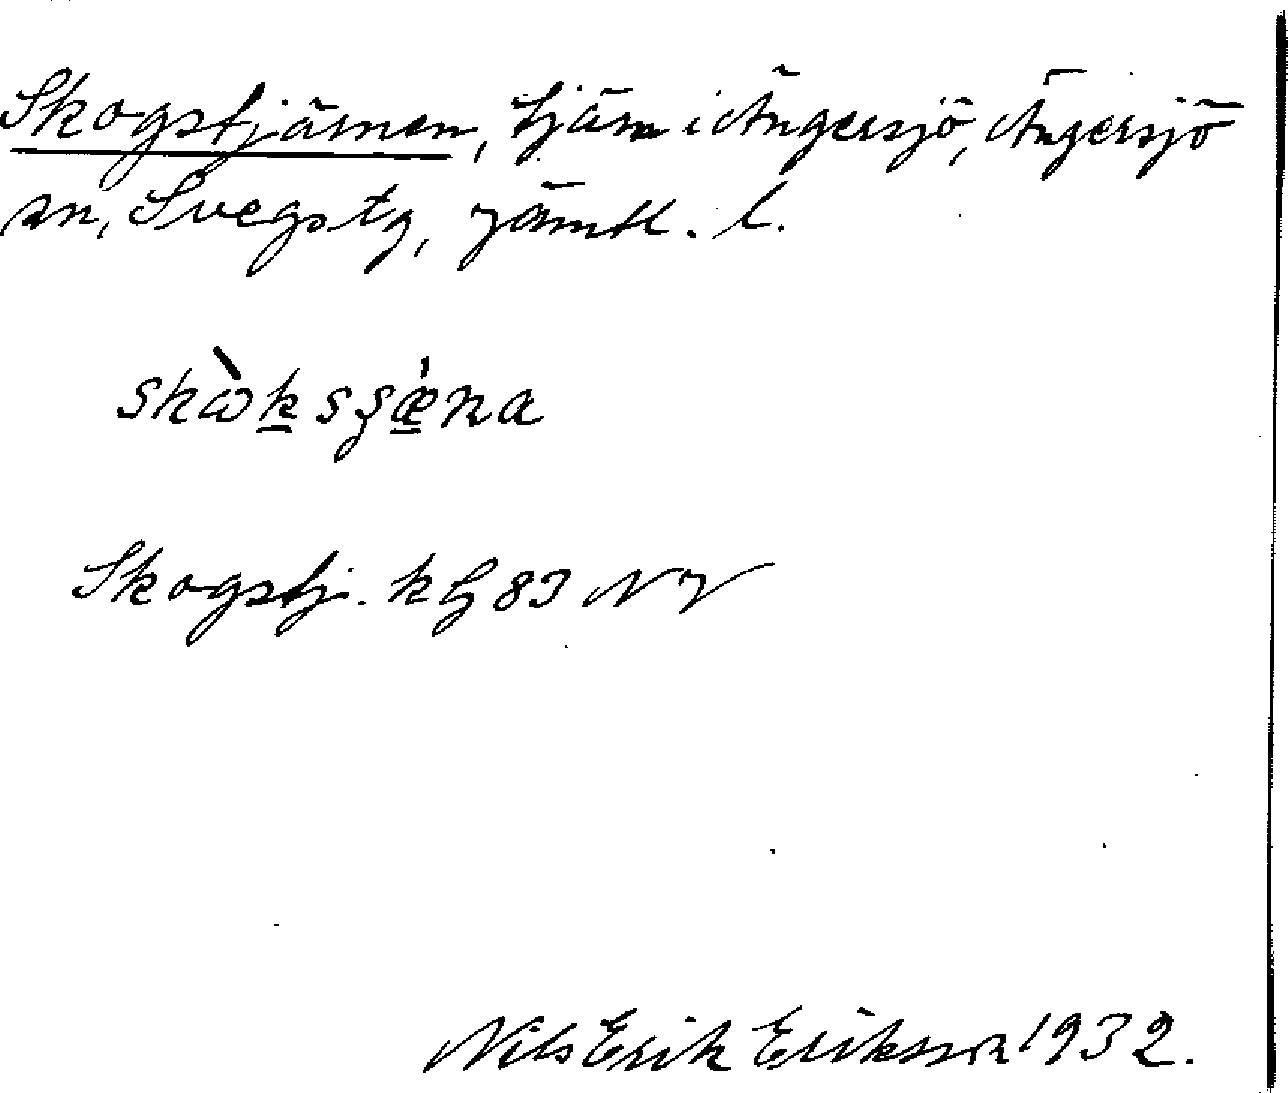 Skogstjärnen, tjärn i Ängersjö, Ängersjö
sn, Svegs tg, Jämtl. l.
skɷ̀k sʒæ̍na
Skogstj. kb 83 NV
Nils Erik Eriksson 1932.